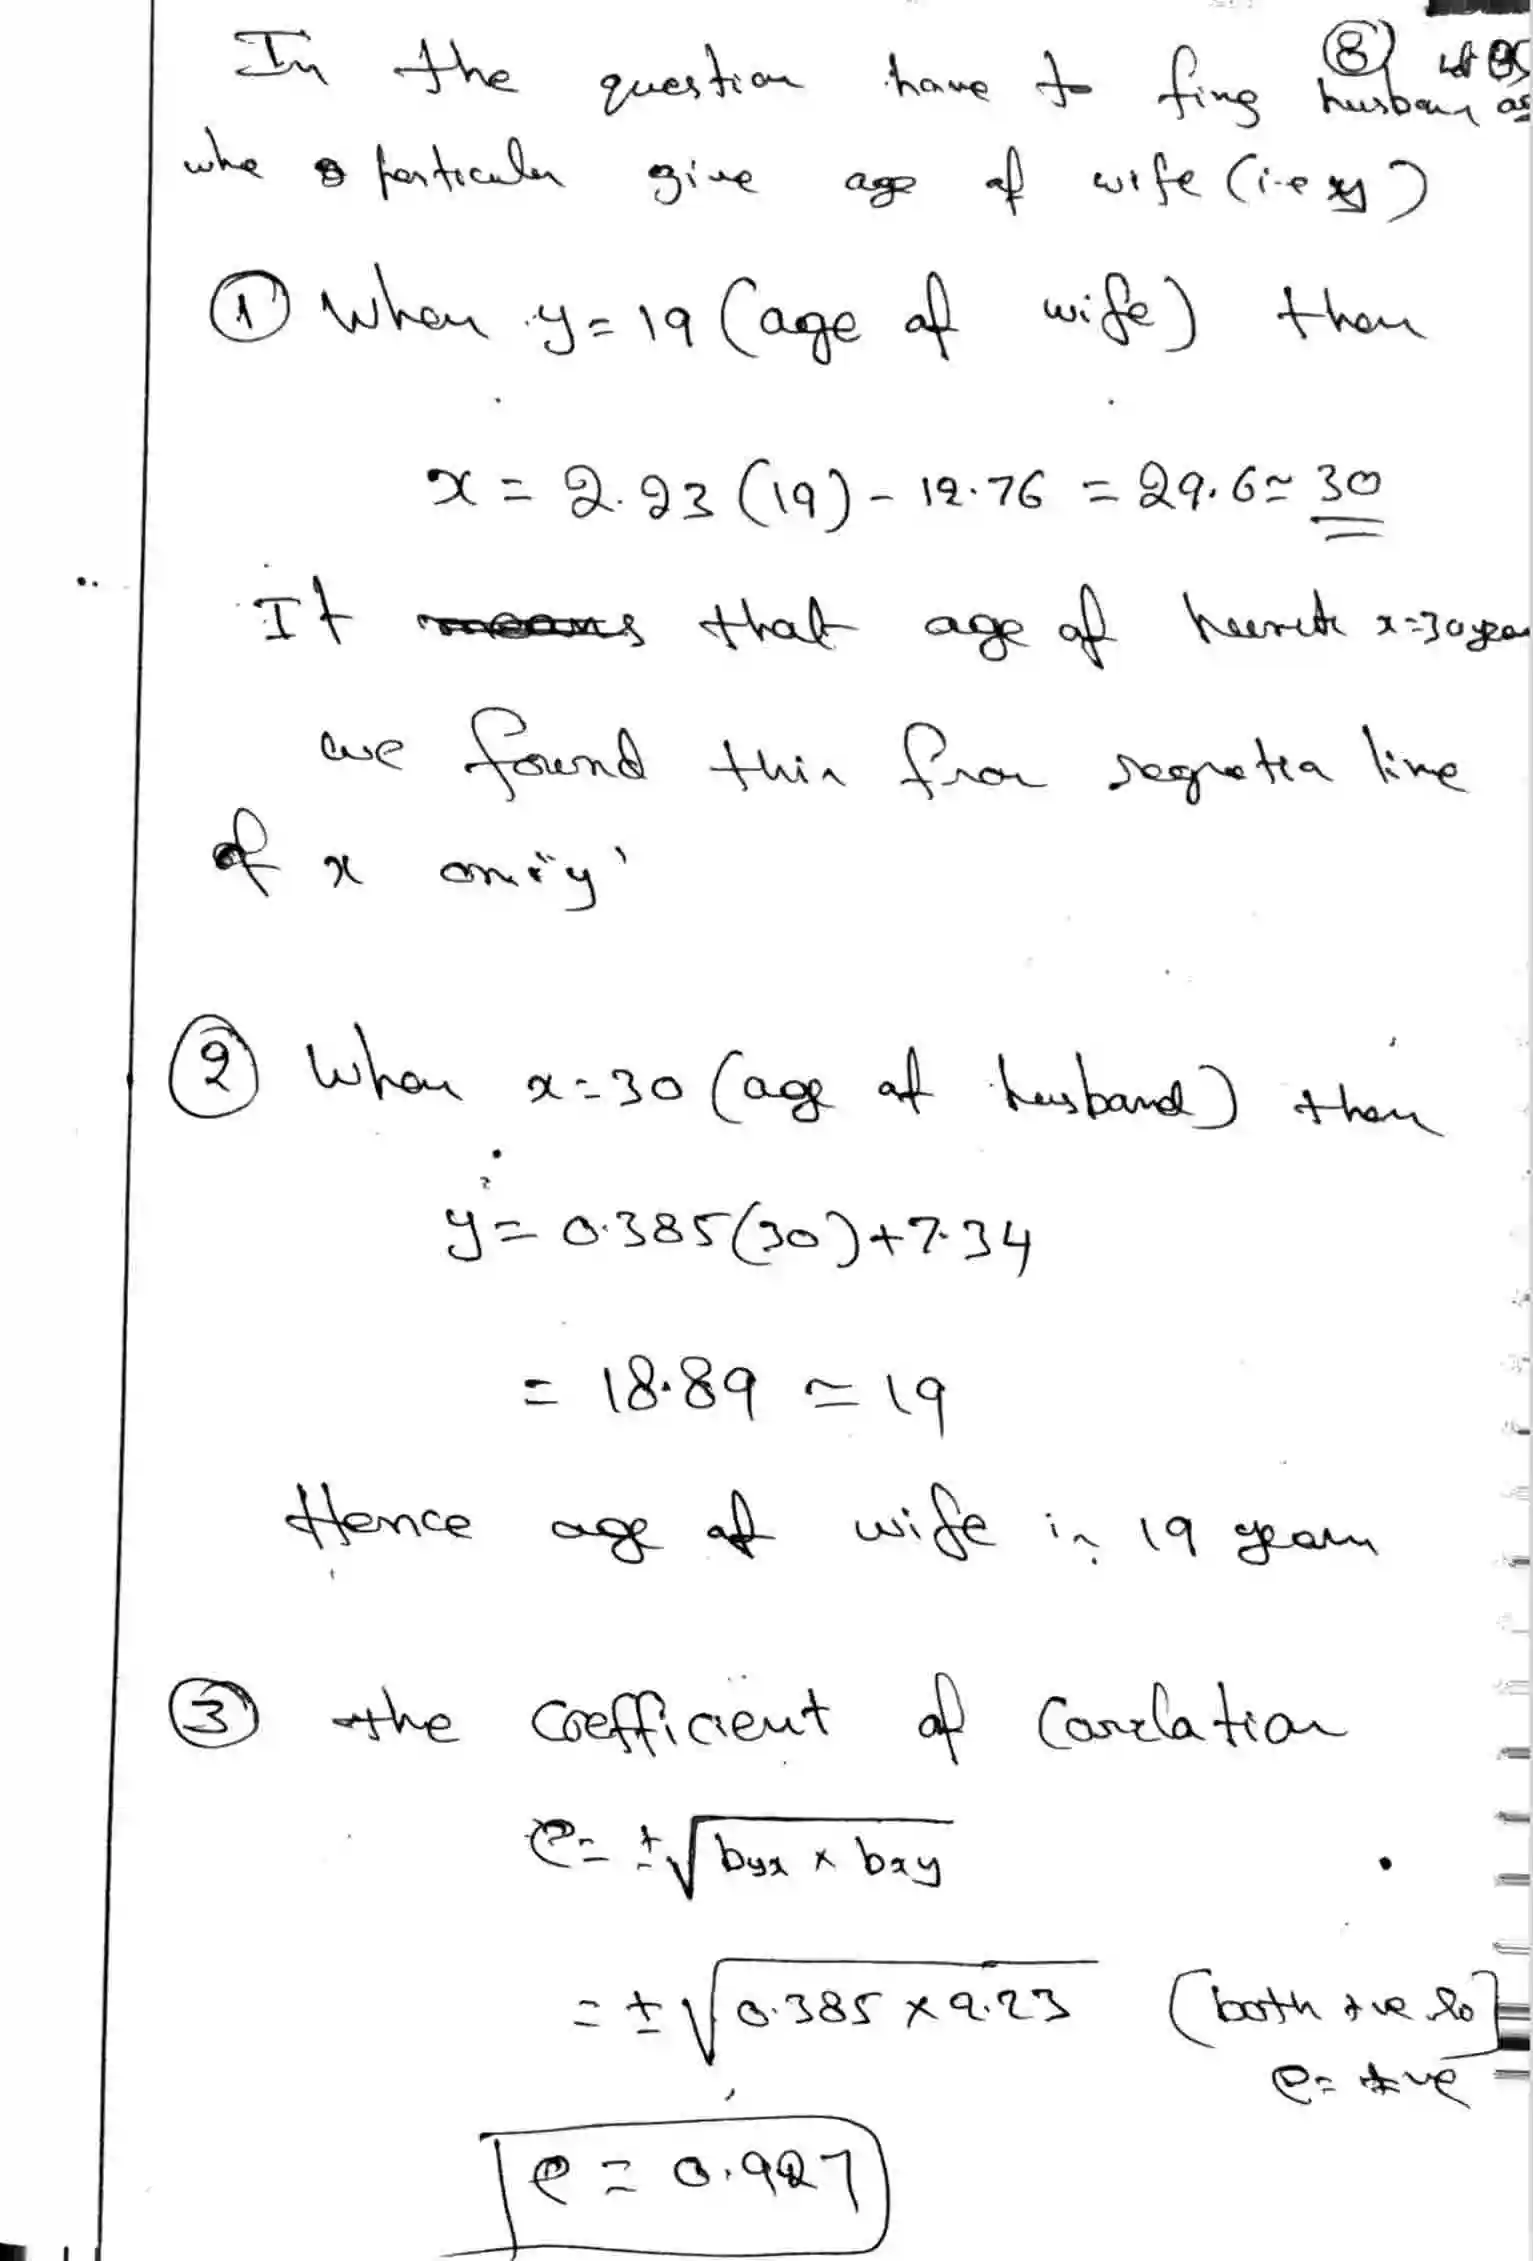 In the question have to fing husban ag
⑧
whe a particular give age of wife (i.e xy)
① When y=19 (age of wife) then
x = 2.23 (19) - 12.76 = 29.6 ≃ 30
It means that age of x=30 year
we found this from regretia line
of x on "y"
② When x=30 (age of husband) then
y = 0.385(30)+7.34
= 18.89 ≃ 19
Hence age of wife is 19 years
③ the coefficient of Correlation
e = ±√byx × bxy
= ±√0.385 × 2.23 (both +ve so
e = +ve
e = 0.927